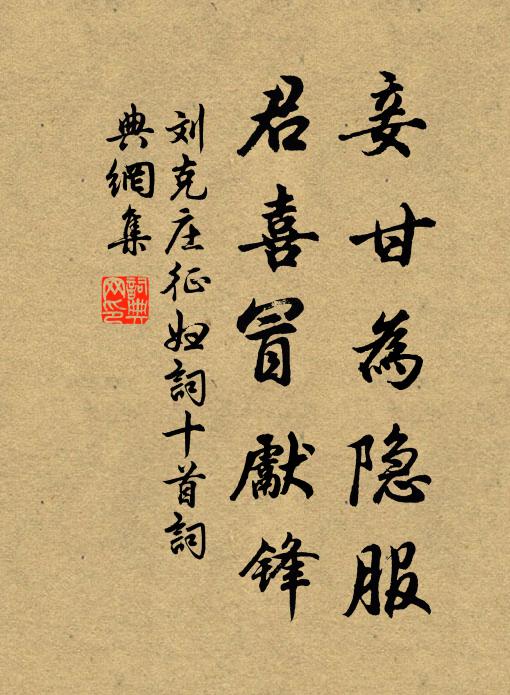 妾甘為隐服
君喜冒獻锋
刘克庄征妇詞十首詞
典網集
詞典网印